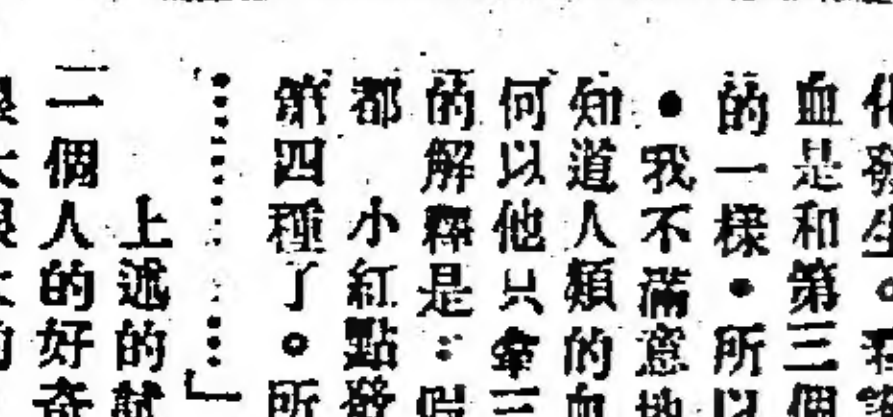 血是和第三個
的一樣・所以
・我不滿意地
知道人類的血
何以他只牽三
的解釋是：
都 小紅點發
第四種了。所
……」
上述的試
二個人的好奇